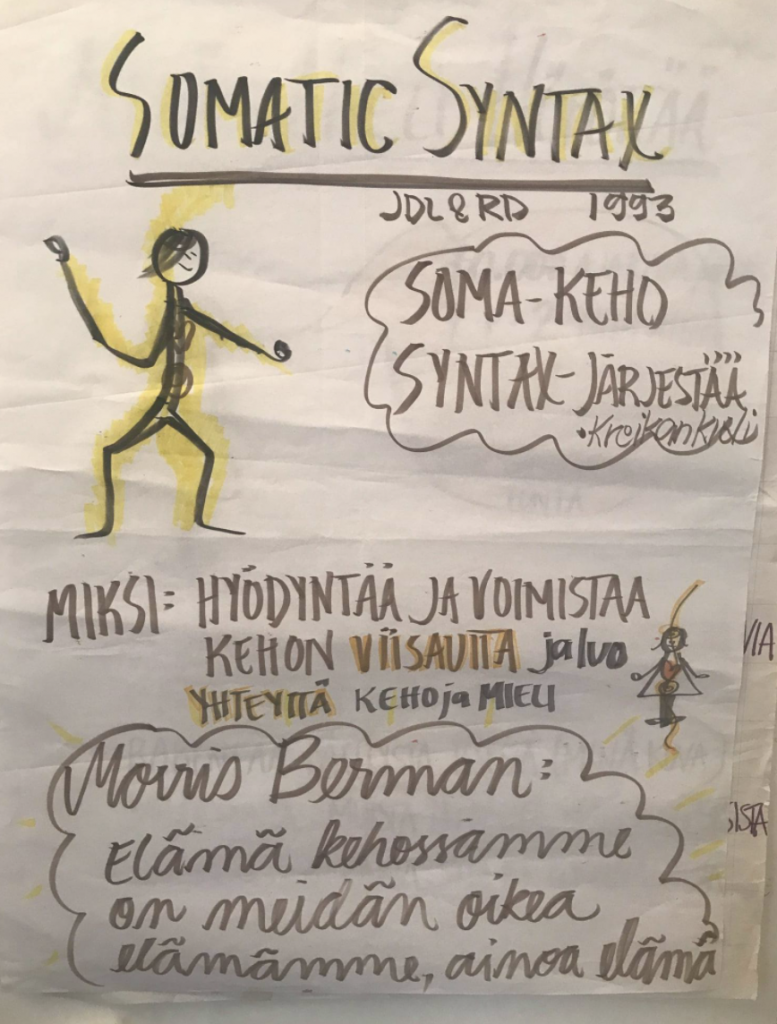 SOMATIC SYNTAX
JDL & RD 1993
SOMA-KEHO
SYNTAX-JÄRJESTÄÄ
• Kreikankieli
MIKSI: HYÖDYNTÄÄ JA VOIMISTAA
KEHON VIISAUTTA ja luo
YHTEYTTÄ KEHO ja MIELI
VIA
Morris Berman:
Elämä kehossamme
on meidän oikea
elämämme, ainoa elämä
ISTA